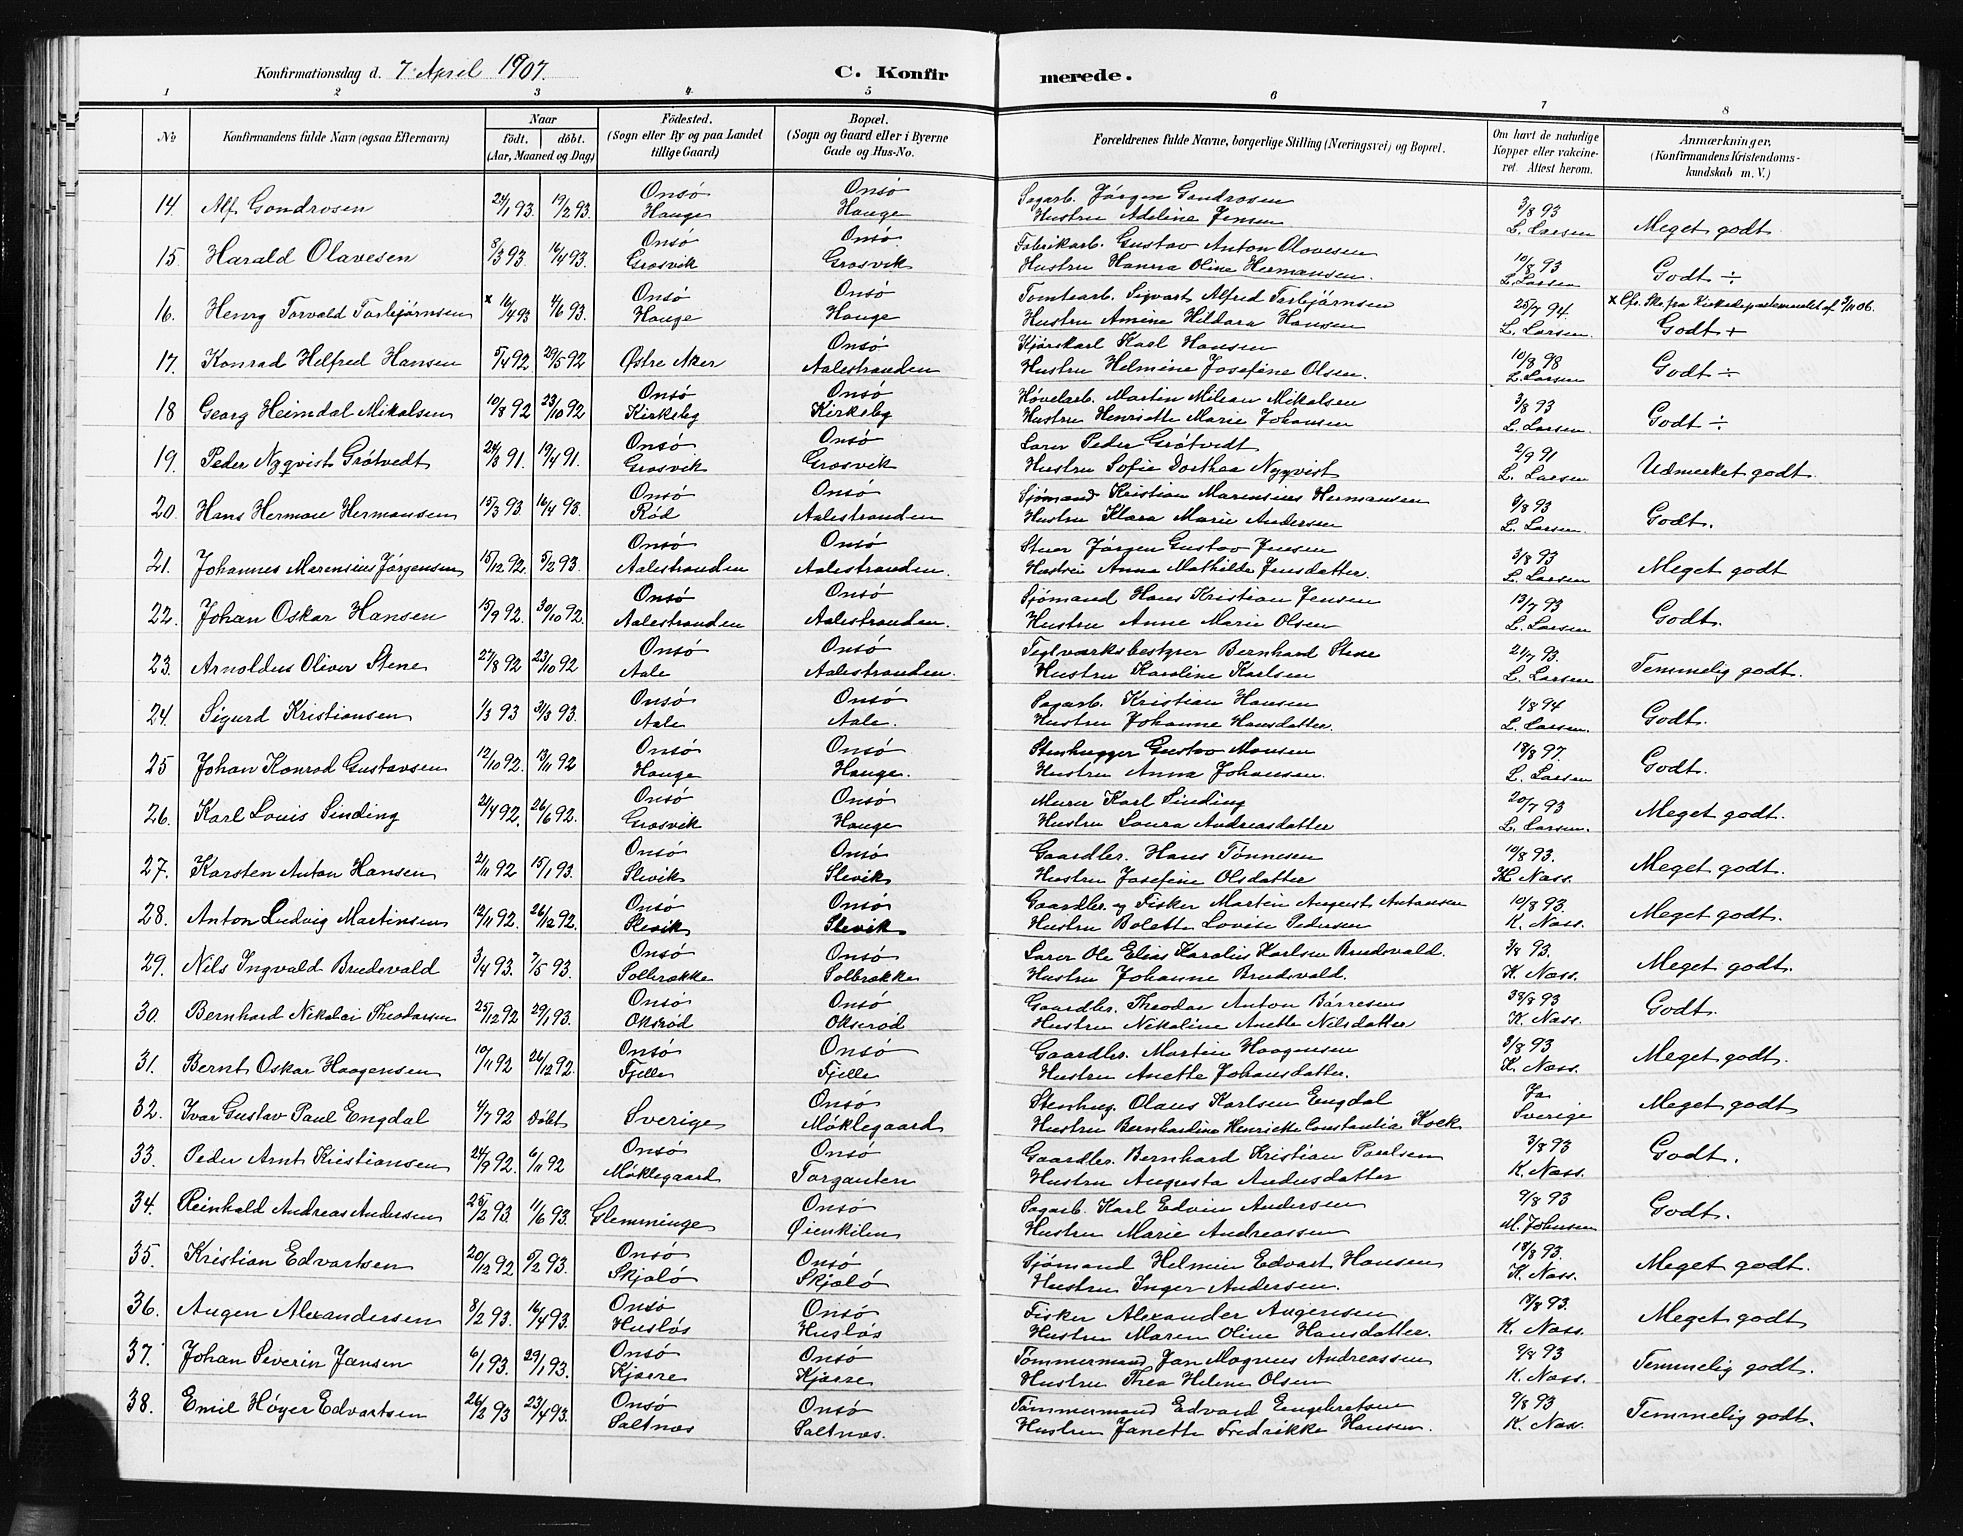 Konfirmationsdag d. 7. April 1907. C. Konfirmerede.
1 2 3 4 5 6 7 8
No Konfirmandens fulde Navn (ogsaa Efternavn) Naar født, døbt. (Aar, Maaned og Dag) Födested. (Sogn eller By og paa Landet tillige Gaard) Bopæl. (Sogn og Gaard eller i Byerne Gade og Hus-No. Forældrenes fulde Navne, borgerlige Stilling (Næringsvei) og Bopæl. Om havt de naturlige Kopper eller vakcineret. Attest herom. Anmærkninger. (Konfirmandens Kristendomskundskab m. V.)
14. Alf Gondrosen 19/2 93. Onsö Hauge Onsö Hauge Sagarb. Jörgen Gondrosen Hustru Adeline Jensen 3/8 93 L. Larsen Meget godt.
15. Harald Olavesen 8/3 93 16/4 93. Onsö Grosvik Onsö. Grosvik Fabrikarb. Gustav Anton Olavesen Hustru Hanna Oline Hermansen. 10/8 93 L. Larsen Godt ÷
16. Henry Torvald Torbjörnsen x 16/4 93 4/6 93. Onsö Hauge Onsö Hauge Tomtearb. Sigvart Alfred Torbjörnsen Hustru Amine Hildara Hansen 25/7 94. L. Larsen. x Cfr. Skr. fra Kirkedepartementet af 06. Godt +
17. Konrad Helfred Hansen 5/4 92 29/5 92 Østre Aker Onsö Aalestranden Kjörskarl Karl Hansen Hustru Helmine Josefine Olsen. 10/8 98 L. Larsen Godt ÷
18 Georg Heimdal Mikalsen 10/8 92 23/10 92 Onsö Kirkeby Onsö Kirkeby Hövelarb. Martin Milian Mikalsen Hustru Henriette Marie Johansen 3/8 93 L. Larsen Godt ÷
19. Peder Nyqvist Grötvedt 24/3 91. 19/4 91. Onsö Grosvik Onsö Grosvik Lærer Peder Grötvedt Hustru Sofie Dorthea Nyqvist 2/9 91 L. Larsen Udmerket godt
20. Hans Herman Hermansen 15/3 93 16/4 93. Onsö Röd Onsö Aalestranden Sjömand Kristian Marensius Hermansen Hustru Klara Marie Andersen 3/8 93 L. Larsen Godt.
21. Johannes Marensius Jörgensen 15/12 92. 5/2 93. Onsö Aalestranden Onsö Aalestranden. Stuer Jörgen Gustav Jensen Hustru Anna Mathilde Jensdatter. 3/8 93 L. Larsen Meget godt
22. Johan Oskar Hansen 15/9 92. 30/10 92. Onsö Aalestranden Onsö Aalestranden. Sjömand Hans Kristian Jensen Hustru Anne Marie Olsen 13/7 93 L. Larsen Godt.
23. Arnoldus Oliver Stene 27/8 92 23/10 92 Onsö Aale Onsö Aalestranden. Teglværksbestyrer Bernhard Stene Hustru Karoline Karlsen 21/7 93. L. Larsen Temmelig godt.
24. Sigurd Kristiansen 1/3 93 31/3 93. Onsö Aale Onsö Aale. Sagarb. Kristian Hansen Hustru Johanne Hansdatter. 1/8 94 L. Larsen. Godt.
25 Johan Konrad Gustavsen 12/10 92. 13/11 92 Onsö Hauge Onsö Hauge. Stenhugger Gustav Monsen Hustru Anna Johansen. 18/8 97. L. Larsen Godt.
26. Karl Louis Sinding 21/4 92. 26/6 92. Onsö Grosvik Onsö Hauge Murer Karl Sinding Hustru Laura Andreasdatter 20/7 93 L. Larsen. Meget godt.
27. Karsten Anton Hansen 2/11 92 15/1 93. Onsö Slevik Onsö Slevik Gaardbr. Hans Tönnesen Hustru Josefine Olsdatter 10/8 93. K Næss. Meget godt.
28. Anton Ludvig Martinsen 12/11 92. 26/12 92. Onsö Slevik Onsö Slevik Gaardbr. og Fisker Martin August Antonsen Hustru Bolette Lovise Pedersen 10/8 93. K. Næss. Meget godt.
29. Nils Ingvald Brudevald 3/4 93. 7/5 93. Onsö Solbrække Onsö Solbrække Lærer Ole Elias Karolius Karlsen Brudevald. Hustru Johanne Brudevald. 3/8 93. K. Næss. Meget godt.
30. Bernhard Nikolai Theodorsen 25/12 92 29/1 93. Onsö Oksröd Onsö Oksröd Gaardbr. Theodor Anton Börresen Hustru Nikoline Anette Nilsdatter K. Næss. Godt.
31. Bernt Oskar Haagensen 10/11 92 26/12 92. Onsö Fjelle Onsö Fjelle Gaardbr. Martin Haagensen Hustru Anette Johansdatter. 3/8 93 K. Næss. Meget godt.
32. Ivar Gustav Paul Engdal 4/7 92 Döbt Sverige Onsö Møklegaard Stenhug. Olaus Karlsen Engdal Hustru Bernhardine Henriette Constantia Kock Ja Sverige Meget godt
33. Peder Arnt Kristiansen 24/9 92. 6/11 92 Onsö Møklegaard Onsö Torgauten Gaardbr. Bernhard Kristian Paulsen Hustru Augusta Andersdatter 3/8 93 K. Næss. Godt.
34. Reinhald Andreas Andersen 25/2 93. 11/6 93. Glemminge Onsö Øienkilen Sagarb. Karl Edvin Andersen Hustru Marie Andreassen 9/8 93 M. Johnsen Godt.
35. Kristian Edvartsen 20/12 92 5/2 93. Onsö Skjælö Onsö Skjælö Sjömand Helmin Edvart Hansen Hustru Inger Andersen. 18/8 93. K. Næss. Meget godt.
36. Augen Alexandersen 8/2 93. 16/4 93. Onsö Husløs Onsö Husløs Fisker Alexander Augensen Hustru Maren Oline Hansdatter. 18/8 93. K. Næss. Meget godt
37. Johan Severin Jansen 6/1 93. 29/1 93. Onsö Kjærre Onsö Kjærre Tömmermand Jan Magnus Andreassen Hustru Thea Helene Olsen 9/8 93 K. Næss. Temmelig godt.
38. Emil Höyer Edvartsen 26/2 93 23/4 93. Onsö Saltnæs Onsö Saltnæs. Tömmermand Edvard Engebretsen Hustru Janette Fredrikke Hansen. 9/8 93 K. Næss. Temmelig godt.